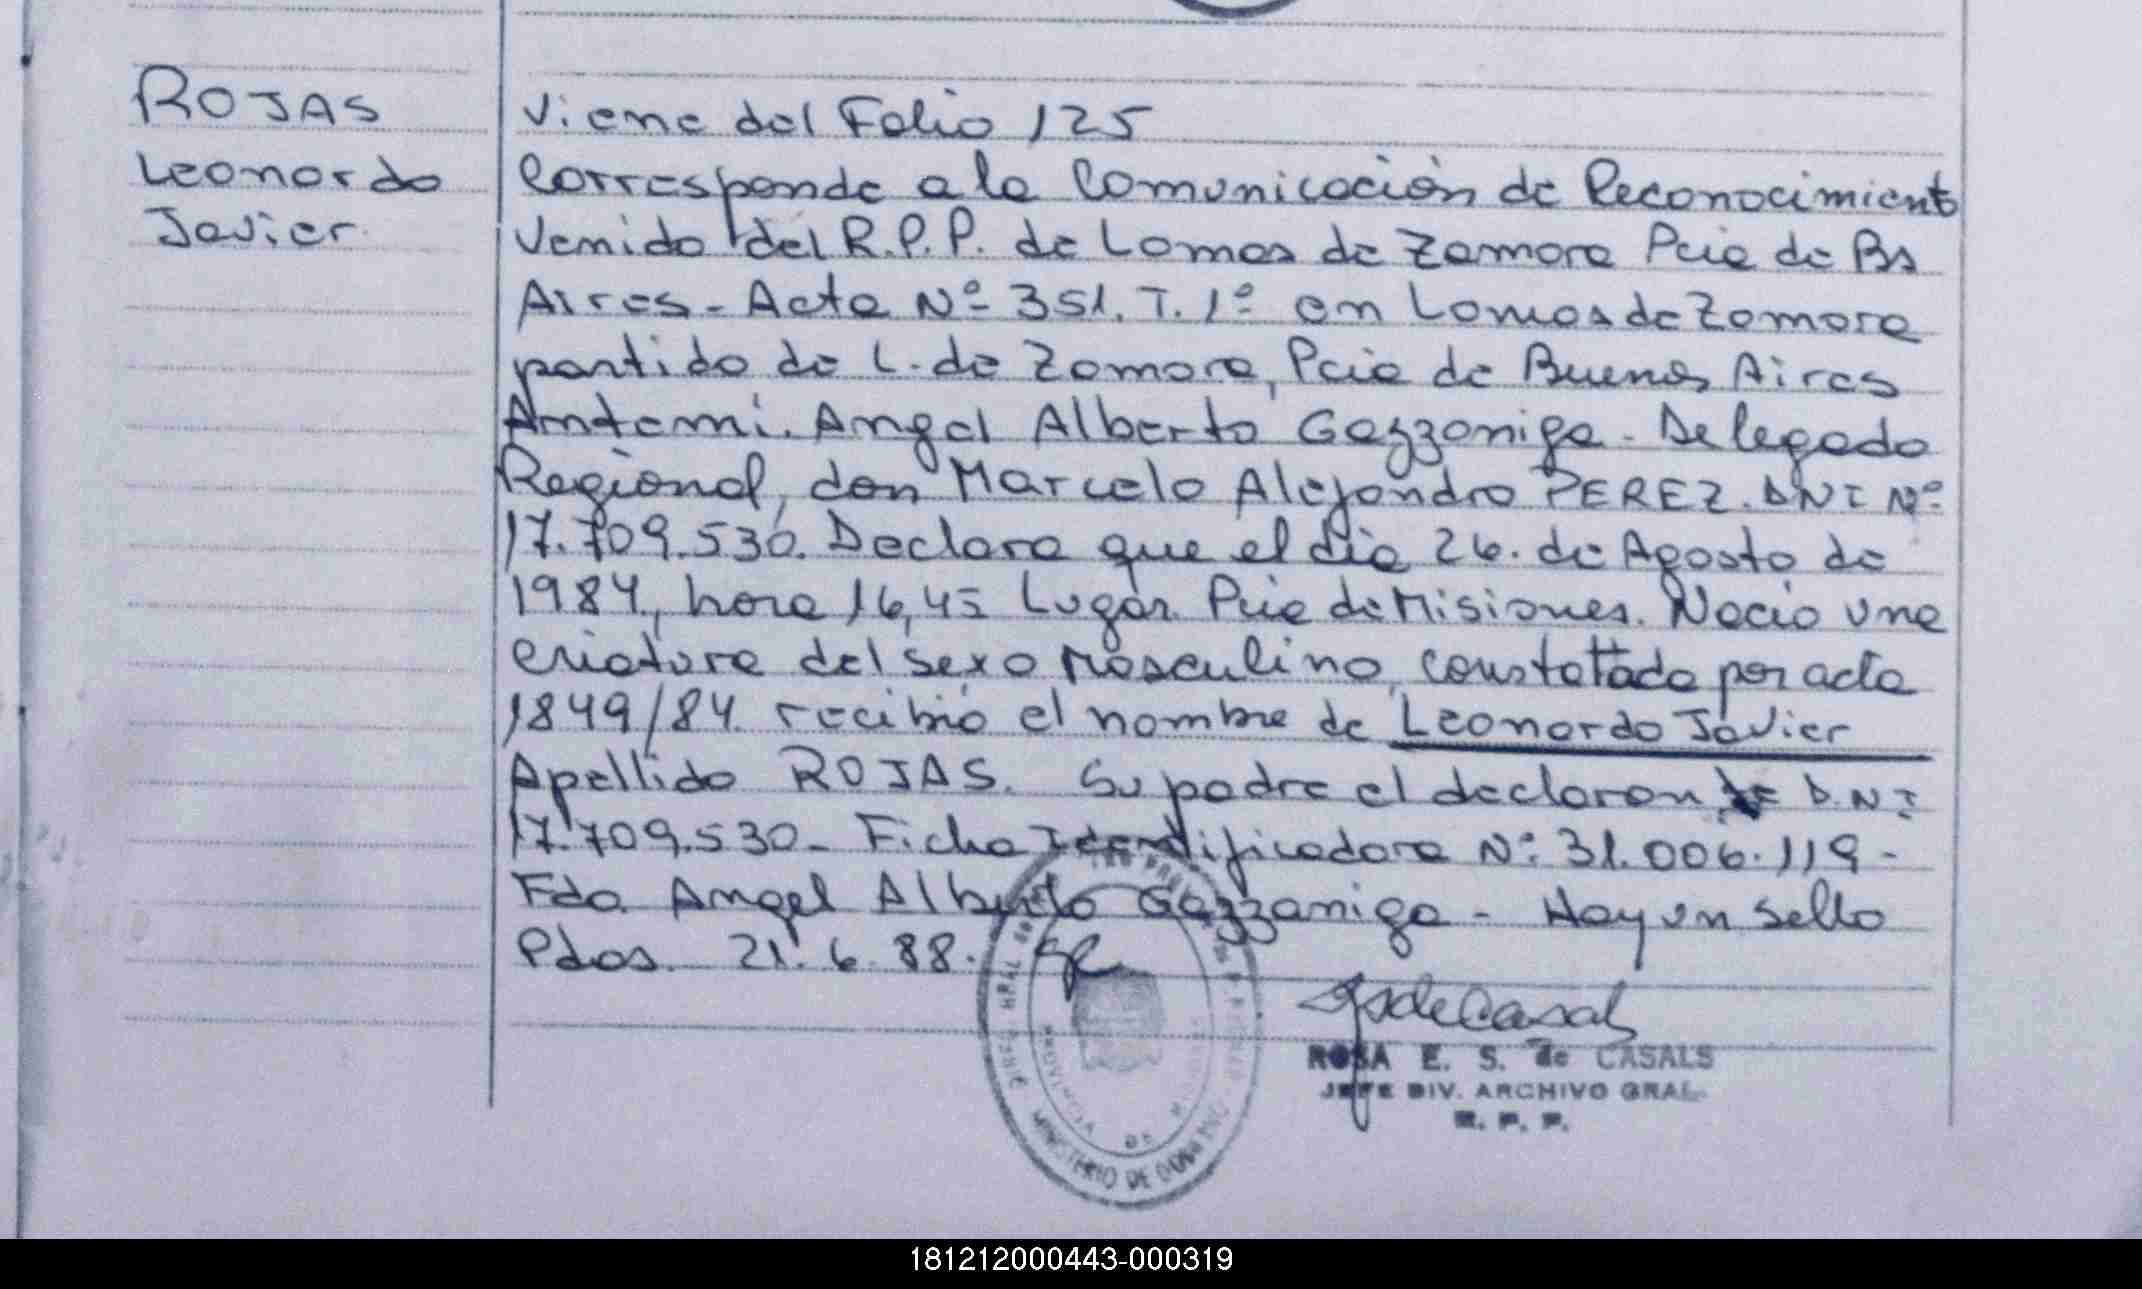 ROJAS
Leonardo
Javier
Viene del Folio 125
Corresponde a la Comunicación de Reconocimiento
Venido del R.P.P. de Lomas de Zamora Pcia de Bs
Aires - Acta Nº 351. T. 1º en Lomas de Zamora
partido de L. de Zamora, Pcia de Buenos Aires
Ante mi. Angel Alberto Gazzaniga - Delegado
Regional, don Marcelo Alejandro PEREZ. DNI Nº
17.709.530. Declara que el dia 26. de Agosto de
1984, hora 16,45 Lugar Pcia de Misiones. Nacio una
criatura del sexo Masculino, constatada por acta
1849/84. recibió el nombre de Leonardo Javier
Apellido ROJAS. Su padre el declarante D.N.I
17.709.530 - Ficha Identificadora Nº 31.006.119 -
Fdo. Angel Alberto Gazzaniga - Hay un sello
Pdas. 21.6.88.
ROSA E. S. de CASALS
JEFE DIV. ARCHIVO GRAL.
R. P. P.
PROVINCIA DE
MINISTERIO DE
181212000443-000319